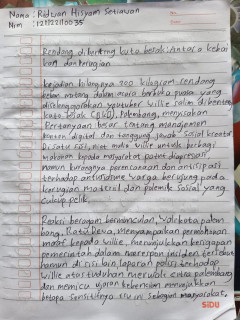 Nama : Ridwan Hisyam Setiawan
Nim : 121221110035
Rendang di benteng kuto besak: Antara kebai
kan dan kerugian
kejadian hilangnya 200 kilogram rendang
dalam acara berbagi puasa yang
diselenggarakan youtuber willie salim dibenteng
kuto besak (BKB), Palembang, menyisakan
Pertanyaan besar tentang manajemen
konten digital dan tanggung jawab sosial kreator.
Disatu sisi, niat mulia willie untuk berbagi
makanan kepada masyarakat patut diapresiasi
namun kurangnya perencanaan dan antisipasi
terhadap antusiasme warga berujung pada
kerugian materil dan polemik sosial yang
cukup pelik.
Reaksi beragam bermunculan, Walikota palem
bang, Ratu Dewa, menyampaikan permohonan
maaf kepada willie, menunjukkan kesigapan
pemerintah dalam merespon insiden tersebut
namun di sisi lain, laporan polisi terhadap
willie atas tuduhan merusak citra palembang
dan memicu ujaran kebencian menunjukkan
betapa sensitifnya isu ini sebagian masyarakat.
SiDU